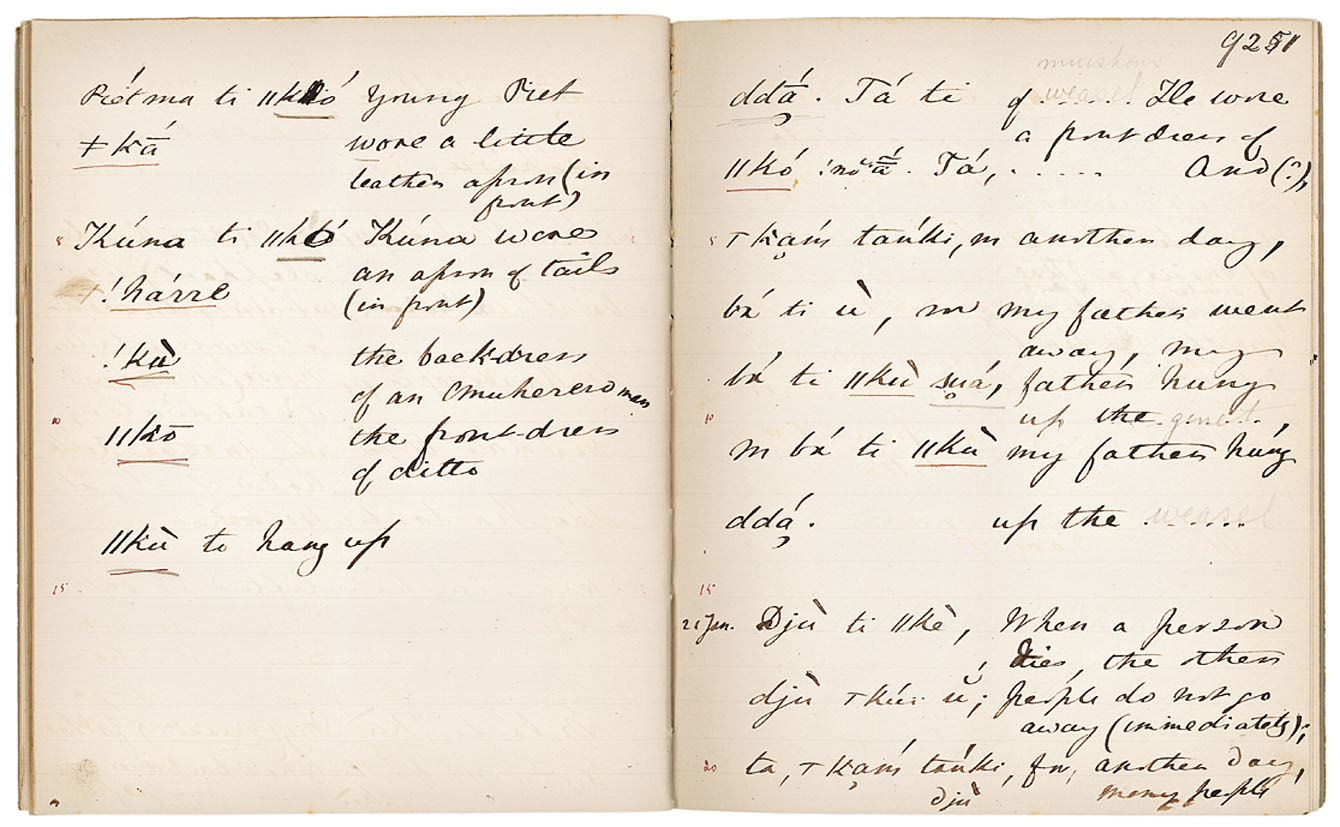 Piét ma ti ǁkó Young Piet
ǂkā́ wore a little
leather apron (in
front)
5 Kúna ti ǁkó Kúna wore
an apron of tails
ǂ!hárre (in front)
!kù the back-dress
of an Omuherero man
10 ǁkō the front-dress
of ditto
ǁkù to hang up
15
9251
muishond
ddá̄. Tá ti of weasel. He wore
a front dress of
ǁkó, . Tá, ..... And (?),
5 ꞇkaḿ̨ tańki, m another day,
bá ti ù, m my father went
away, my
bá ti ǁkù su̥á, father hung
10 up the genet.,
m bá ti ǁkù my father hung
ddá̧. up the weasel
15
21 Jan. Djù ti ǁkè, When a person
dies, the other
djù ꞇkúi ŭ́; people do not go
away (immediately);
20 ta, ꞇkaḿ̨ tańki, fn, another day,
djù many people